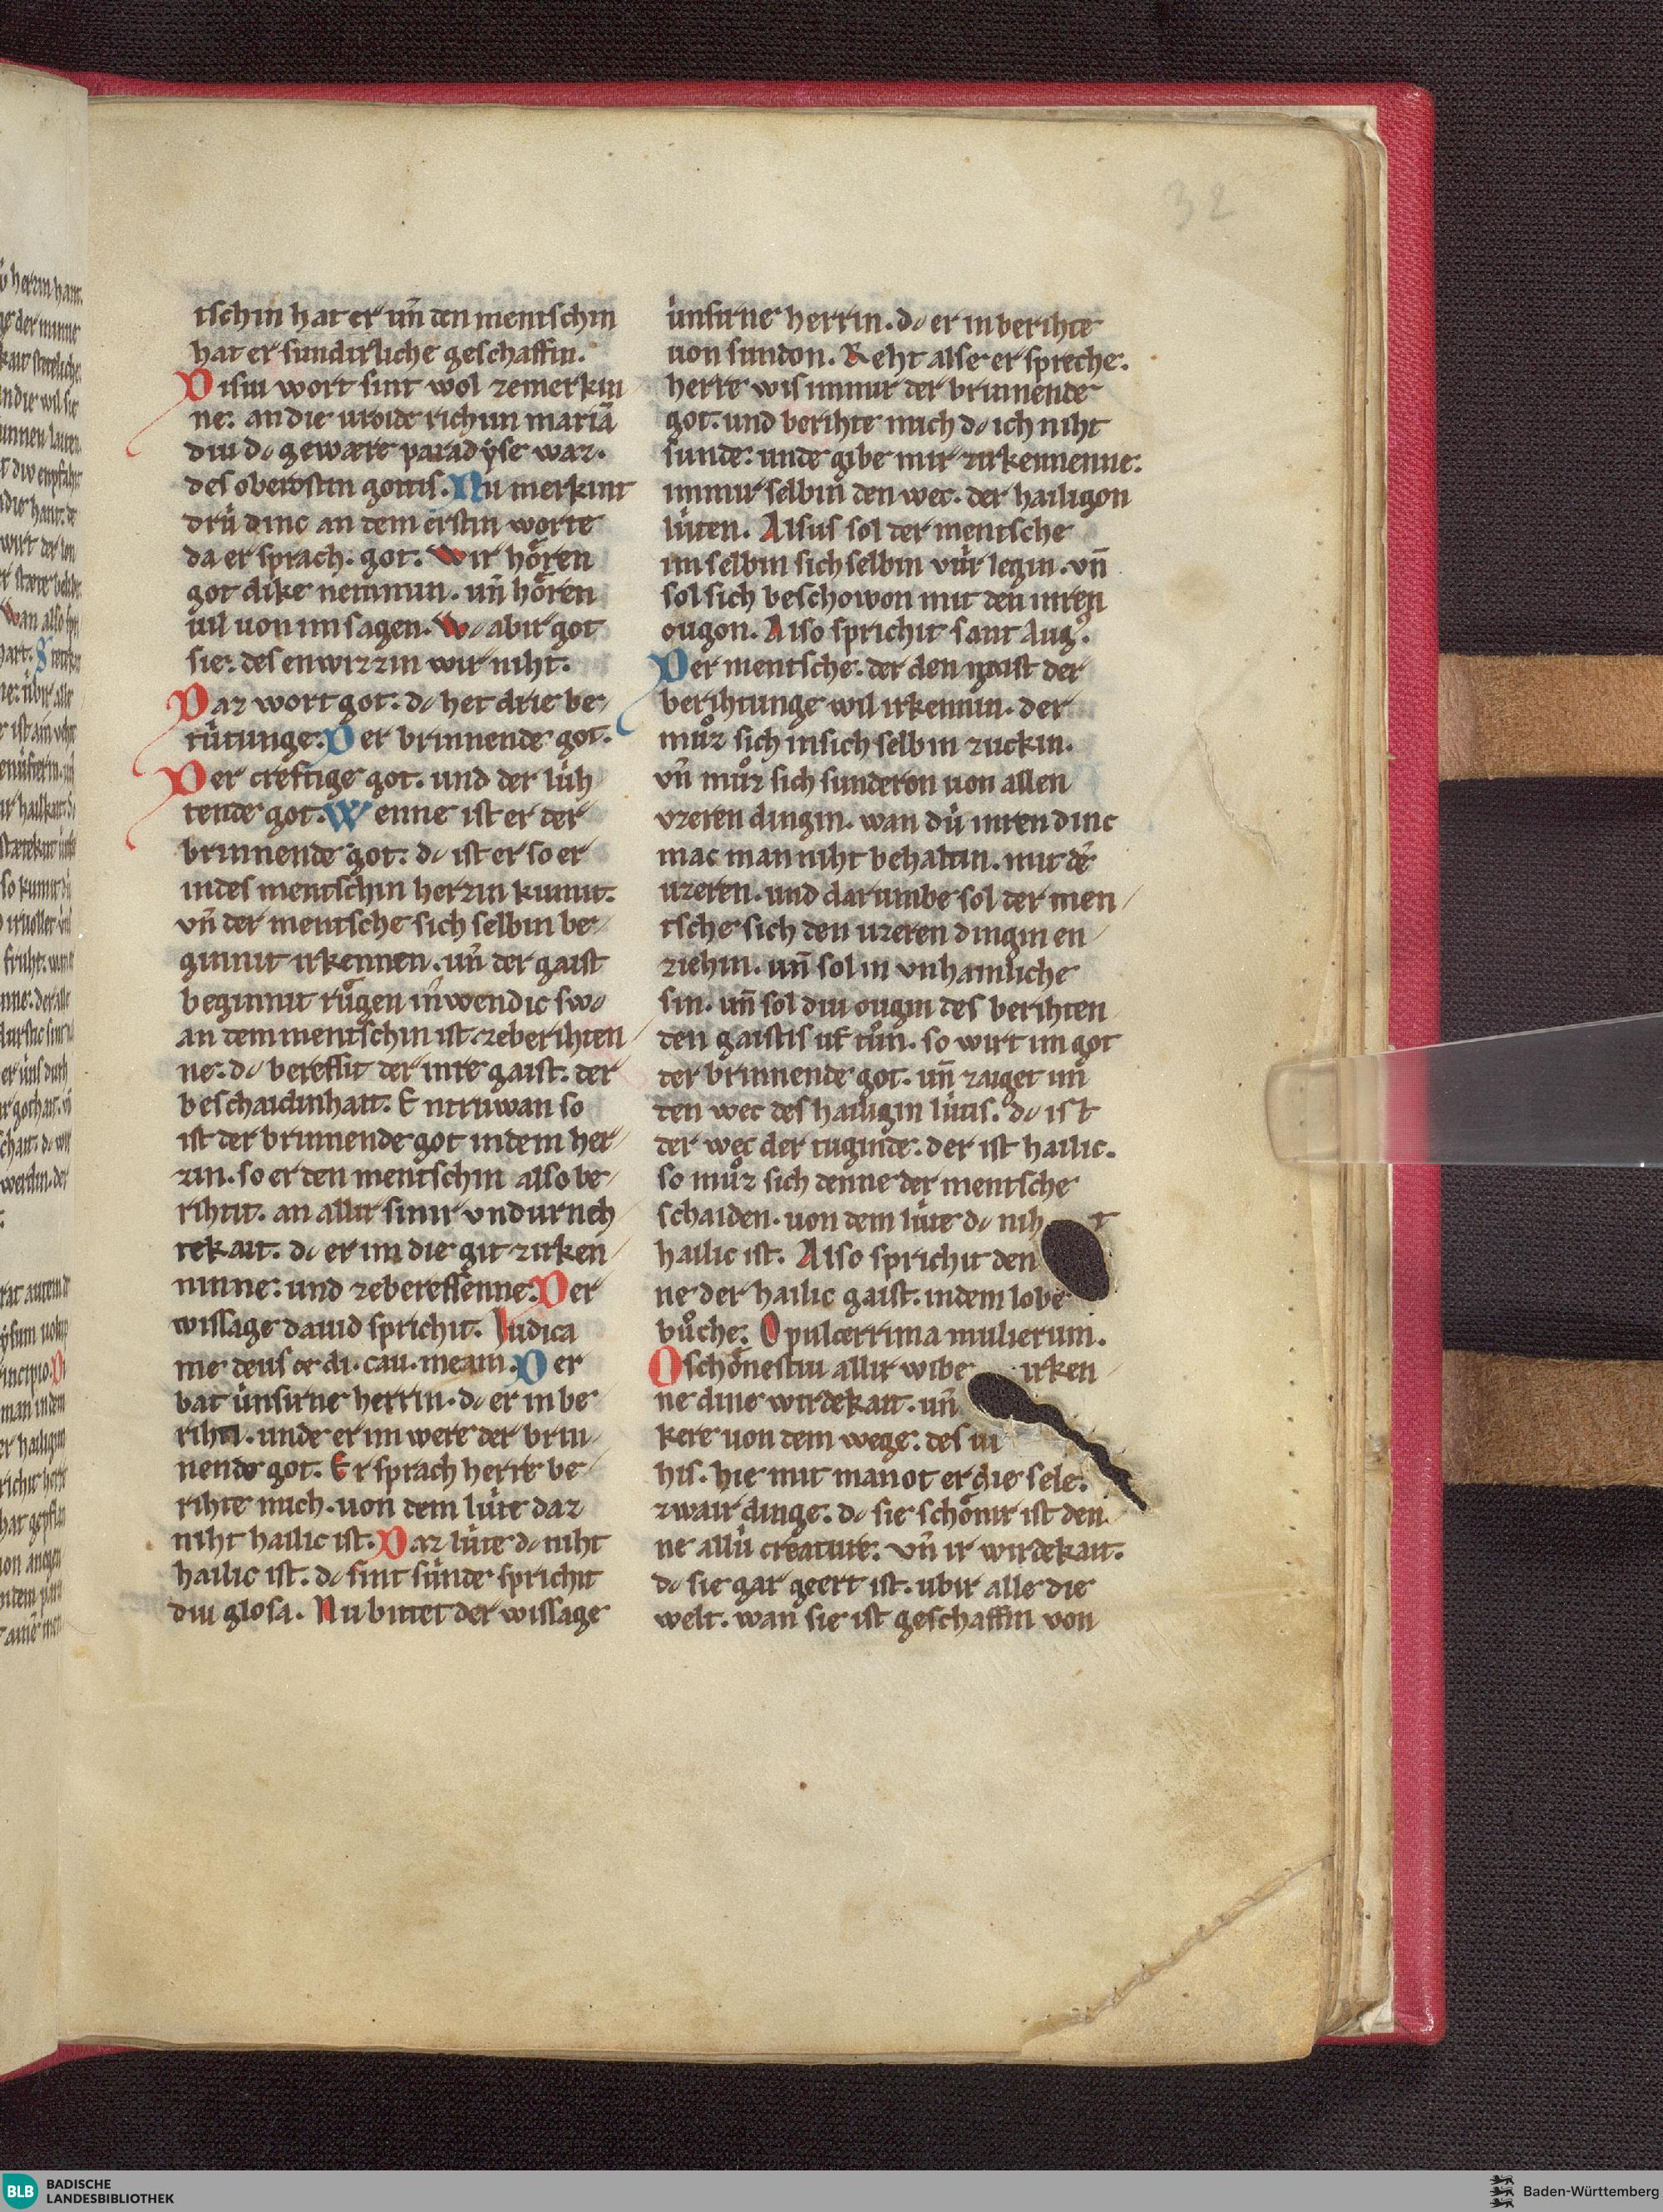 32
tschin hat er vn̄ den mentschin
hat er sundirliche geschaffin.
Disiu wort sint wol zemerkin
ne: an die vroide richun mariā
diu dc geware paradyse waz.
des oberostin gottis. Nu merkint
drú dinc an dem erstin worte
da er sprach. got. Wir hören
got dike nemmin. vn̄ hören
vil von im sagen. Wc abir got
sie: des enwizzin wir niht.
Daz wort got. dc het drie be
tútunge. Der brinnende got.
Der creftige got. und der lúh
tende got. Wenne ist er der
brinnende got: dc ist er so er
in des mentschin herzin kumit.
vn̄ der mentsche sich selbin be
ginnit irkennen. vn̄ der gaist
beginnit růgen inwendic swc
an dem mentschin ist zeberihten
ne: dc bereffit der inre gaist. der
beschaidinhait. Entruwan so
ist der brinnende got in dem her
zin. so er den mentschin also be
rihtit. an allir sinir vndurnch
tekait. dc er im die git zirken
ninne: und zebereffenne: Der
wissage dauid sprichit. Iudica
me deus et di. cau. meam. Der
bat únsirne herrin. dc er in be
rihti. unde er im were der brin
nendo got. Er sprach herre be
rihte mich. von dem lúte daz
niht hailic ist. Daz lúte dc niht
hailic ist. dc sint súnde sprichit
diu glosa. Nu bittet der wissage
únsirne herrin. dc er in berihte
von sundon. Reht alse er spreche.
herre wis immir der brinnende
got. und berihte mich dc ich niht
sunde: unde gibe mir zirkennenne:
inmir selbin den wec. der hailigon
lúten. Alsus sol der mentsche
im selbin sich selbin vúr legin. vn̄
sol sich beschowon mit den inren
ougon. Also sprichit sant Aug9.
Der mentsche. der den gaist der
berihtunge wil irkennin. der
můz sich insich selbin zuckin.
vn̄ můz sich sunderon von allen
vzeren dingin. wan dú inren dinc
mac man niht behaltin. mit dē
uzeren. und darumbe sol der men
tsche sich den uzeren dingin en
ziehin. vn̄ sol in vnhaimliche
sin. vn̄ sol diu ougin des berihten
den gaistis uf tůn. so wirt im got
der brinnende got. vn̄ zaiget im
den wec des hailigin lútis. dc ist
der wec der tuginde: der ist hailic.
so můz sich denne der mentsche
schaiden. von dem lúte dc nih t
hailic ist. Also sprichit den
ne der hailic gaist. indem lobe
bůche: O pulcerrima mulierum.
O schönestiu allir wibe irken
ne dine wirdekait. vn̄
kere von dem wege. des in
his. hie mit manot er die sele:
zwair dinge: dc sie schönir ist den
ne allú creature: vn̄ ir wirdekait.
dc sie gar geert ist. ubir alle die
welt. wan sie ist geschaffin von
BLB
BADISCHE
LANDESBIBLIOTHEK
Baden-Württemberg